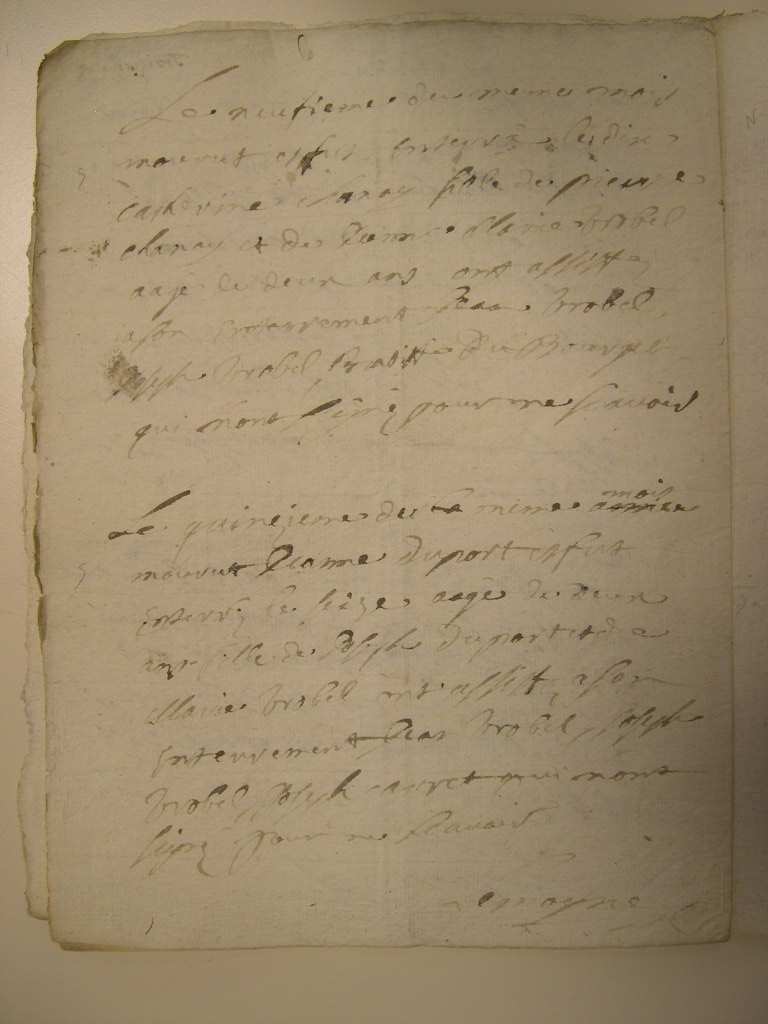 Le neufieme du meme mois
mourut et fut enterré le dix
catherine chanay fille de pierre
chanay et de Jeanne Marie Trobel
aagé de deux ans ont assisté
a son enterrement Jean Trobel,
Joseph Trobel, habitt du Bourget
qui n'ont signé pour ne scavoir
Le quinzieme du meme mois
mourut Jeanne Duport et fut
enterré le seize aagé de deux
ans fille de Joseph Duport et de
Marie Trobel ont assisté a son
enterrement Jean Trobel, Joseph
Trobel Joseph carret qui n'ont
signé pour ne scavoir
Lemoyne